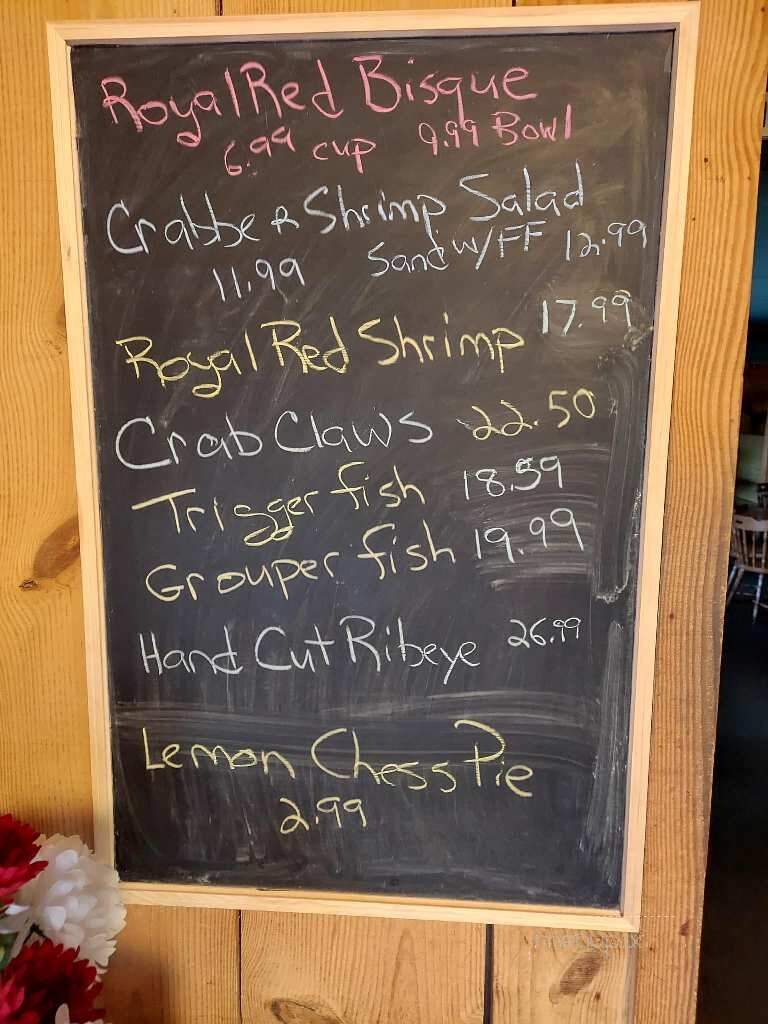 Royal Red Bisque
6.99 cup 9.99 Bowl
Crabbe & Shrimp Salad
11.99 Sand w/FF 12.99
Royal Red Shrimp 17.99
Crab Claws 22.50
Trigger fish 18.59
Grouper fish 19.99
Hand Cut Ribeye 26.99
Lemon Chess Pie
2.99